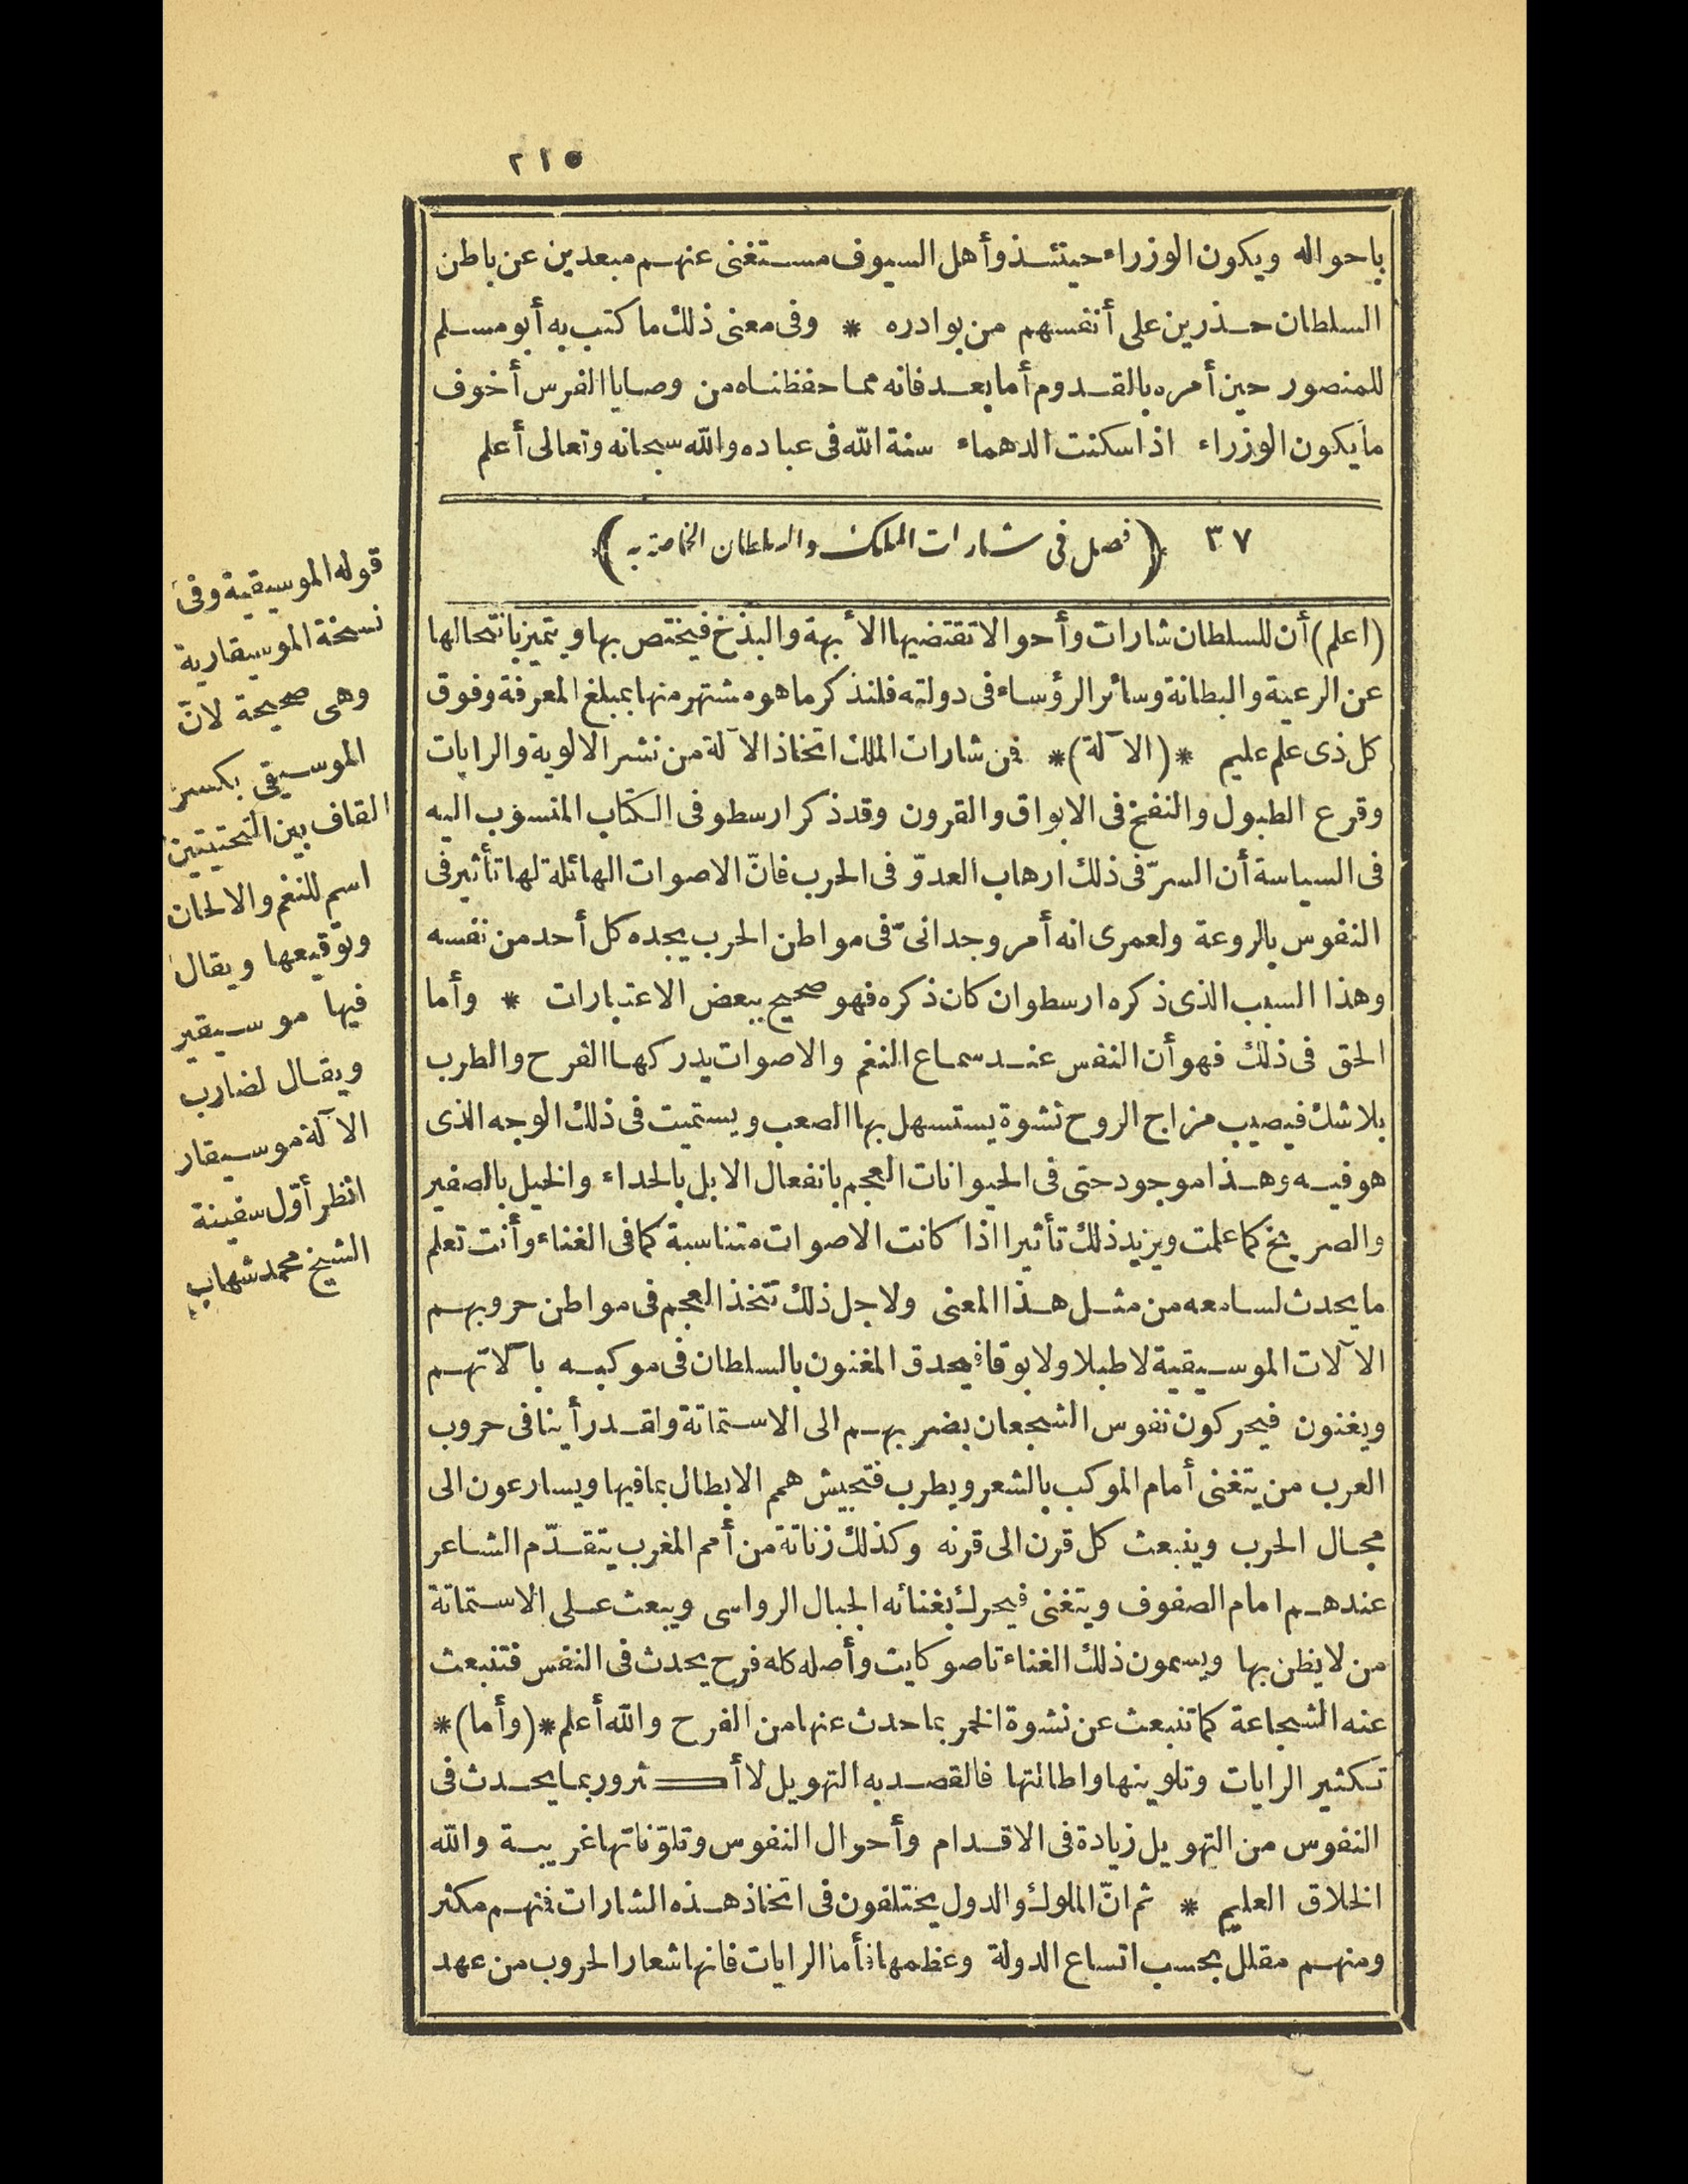 ٢١٥
باحواله ويكون الوزراء حينئذ وأهل السيوف مستغنى عنهم مبعدين عن باطن
السلطان حذرين على أنفسهم من بوادره * وفى معنى ذلك ما كتب به أبو مسلم
للمنصور حين أمره بالقدوم أما بعد فانه مما حفظناه من وصايا الفرس أخوف
ما يكون الوزراء اذا سكنت الدهماء سنة الله فى عباده والله سبحانه وتعالى أعلم
٣٧ (فصل فى شارات الملك والسلطان الخاصة به)
(اعلم) أن للسلطان شارات وأحوالا تقتضيها الأبهة والبذخ فيختص بها ويتميز بانتحالها
عن الرعية والبطانة وسائر الرؤساء فى دولته فلنذكر ما هو مشتهر منها بمبلغ المعرفة وفوق
كل ذى علم عليم *(الآلة)* فمن شارات الملك اتخاذ الآلة من نشر الالوية والرايات
وقرع الطبول والنفخ فى الابواق والقرون وقد ذكر ارسطو فى الكتاب المنسوب اليه
فى السياسة أن السرّ فى ذلك ارهاب العدوّ فى الحرب فانّ الاصوات الهائلة لها تأثير فى
النفوس بالروعة ولعمرى انه أمر وجدانىّ فى مواطن الحرب يجده كل أحد من نفسه
وهذا السبب الذى ذكره ارسطو ان كان ذكره فهو صحيح ببعض الاعتبارات * وأما
الحق فى ذلك فهو أن النفس عند سماع النغم والاصوات يدركها الفرح والطرب
بلا شك فيصيب مزاج الروح نشوة يستسهل بها الصعب ويستميت فى ذلك الوجه الذى
هو فيه وهذا موجود حتى فى الحيوانات العجم بانفعال الابل بالحداء والخيل بالصفير
والصريخ كما علمت ويزيد ذلك تأثيرا اذا كانت الاصوات متناسبة كما فى الغناء وأنت تعلم
ما يحدث لسامعه من مثل هذا المعنى ولاجل ذلك تتخذ العجم فى مواطن حروبهم
الآلات الموسيقية لا طبلا ولا بوقا فيحدق المغنون بالسلطان فى موكبه بآلاتهم
ويغنون فيحركون نفوس الشجعان بضربهم الى الاستماتة ولقد رأينا فى حروب
العرب من يتغنى أمام الموكب بالشعر ويطرب فتجيش همم الابطال بما فيها ويسارعون الى
مجال الحرب وينبعث كل قرن الى قرنه وكذلك زناتة من أمم المغرب يتقدّم الشاعر
عندهم امام الصفوف ويتغنى فيحرك بغنائه الجبال الرواسى ويبعث على الاستماتة
من لا يظن بها ويسمون ذلك الغناء تاصوكايت وأصله كله فرح يحدث فى النفس فتنبعث
عنه الشجاعة كما تنبعث عن نشوة الخمر بما حدث عنها من الفرح والله أعلم *(وأما)*
تكثير الرايات وتلوينها واطالتها فالقصد به التهويل لا أكثر وربما يحدث فى
النفوس من التهويل زيادة فى الاقدام وأحوال النفوس وتلوّناتها غريبة والله
الخلاق العليم * ثم انّ الملوك والدول يختلفون فى اتخاذ هذه الشارات فمنهم مكثر
ومنهم مقلل بحسب اتساع الدولة وعظمها فأما الرايات فانها شعار الحروب من عهد
قوله الموسيقية وفى
نسخة الموسيقارية
وهى صحيحة لانّ
الموسيقى بكسر
القاف بين التحتيتين
اسم للنغم والالحان
وتوقيعها ويقال
فيها موسيقير
ويقال لضارب
الآلة موسيقار
انظر أوّل سفينة
الشيخ محمد شهاب